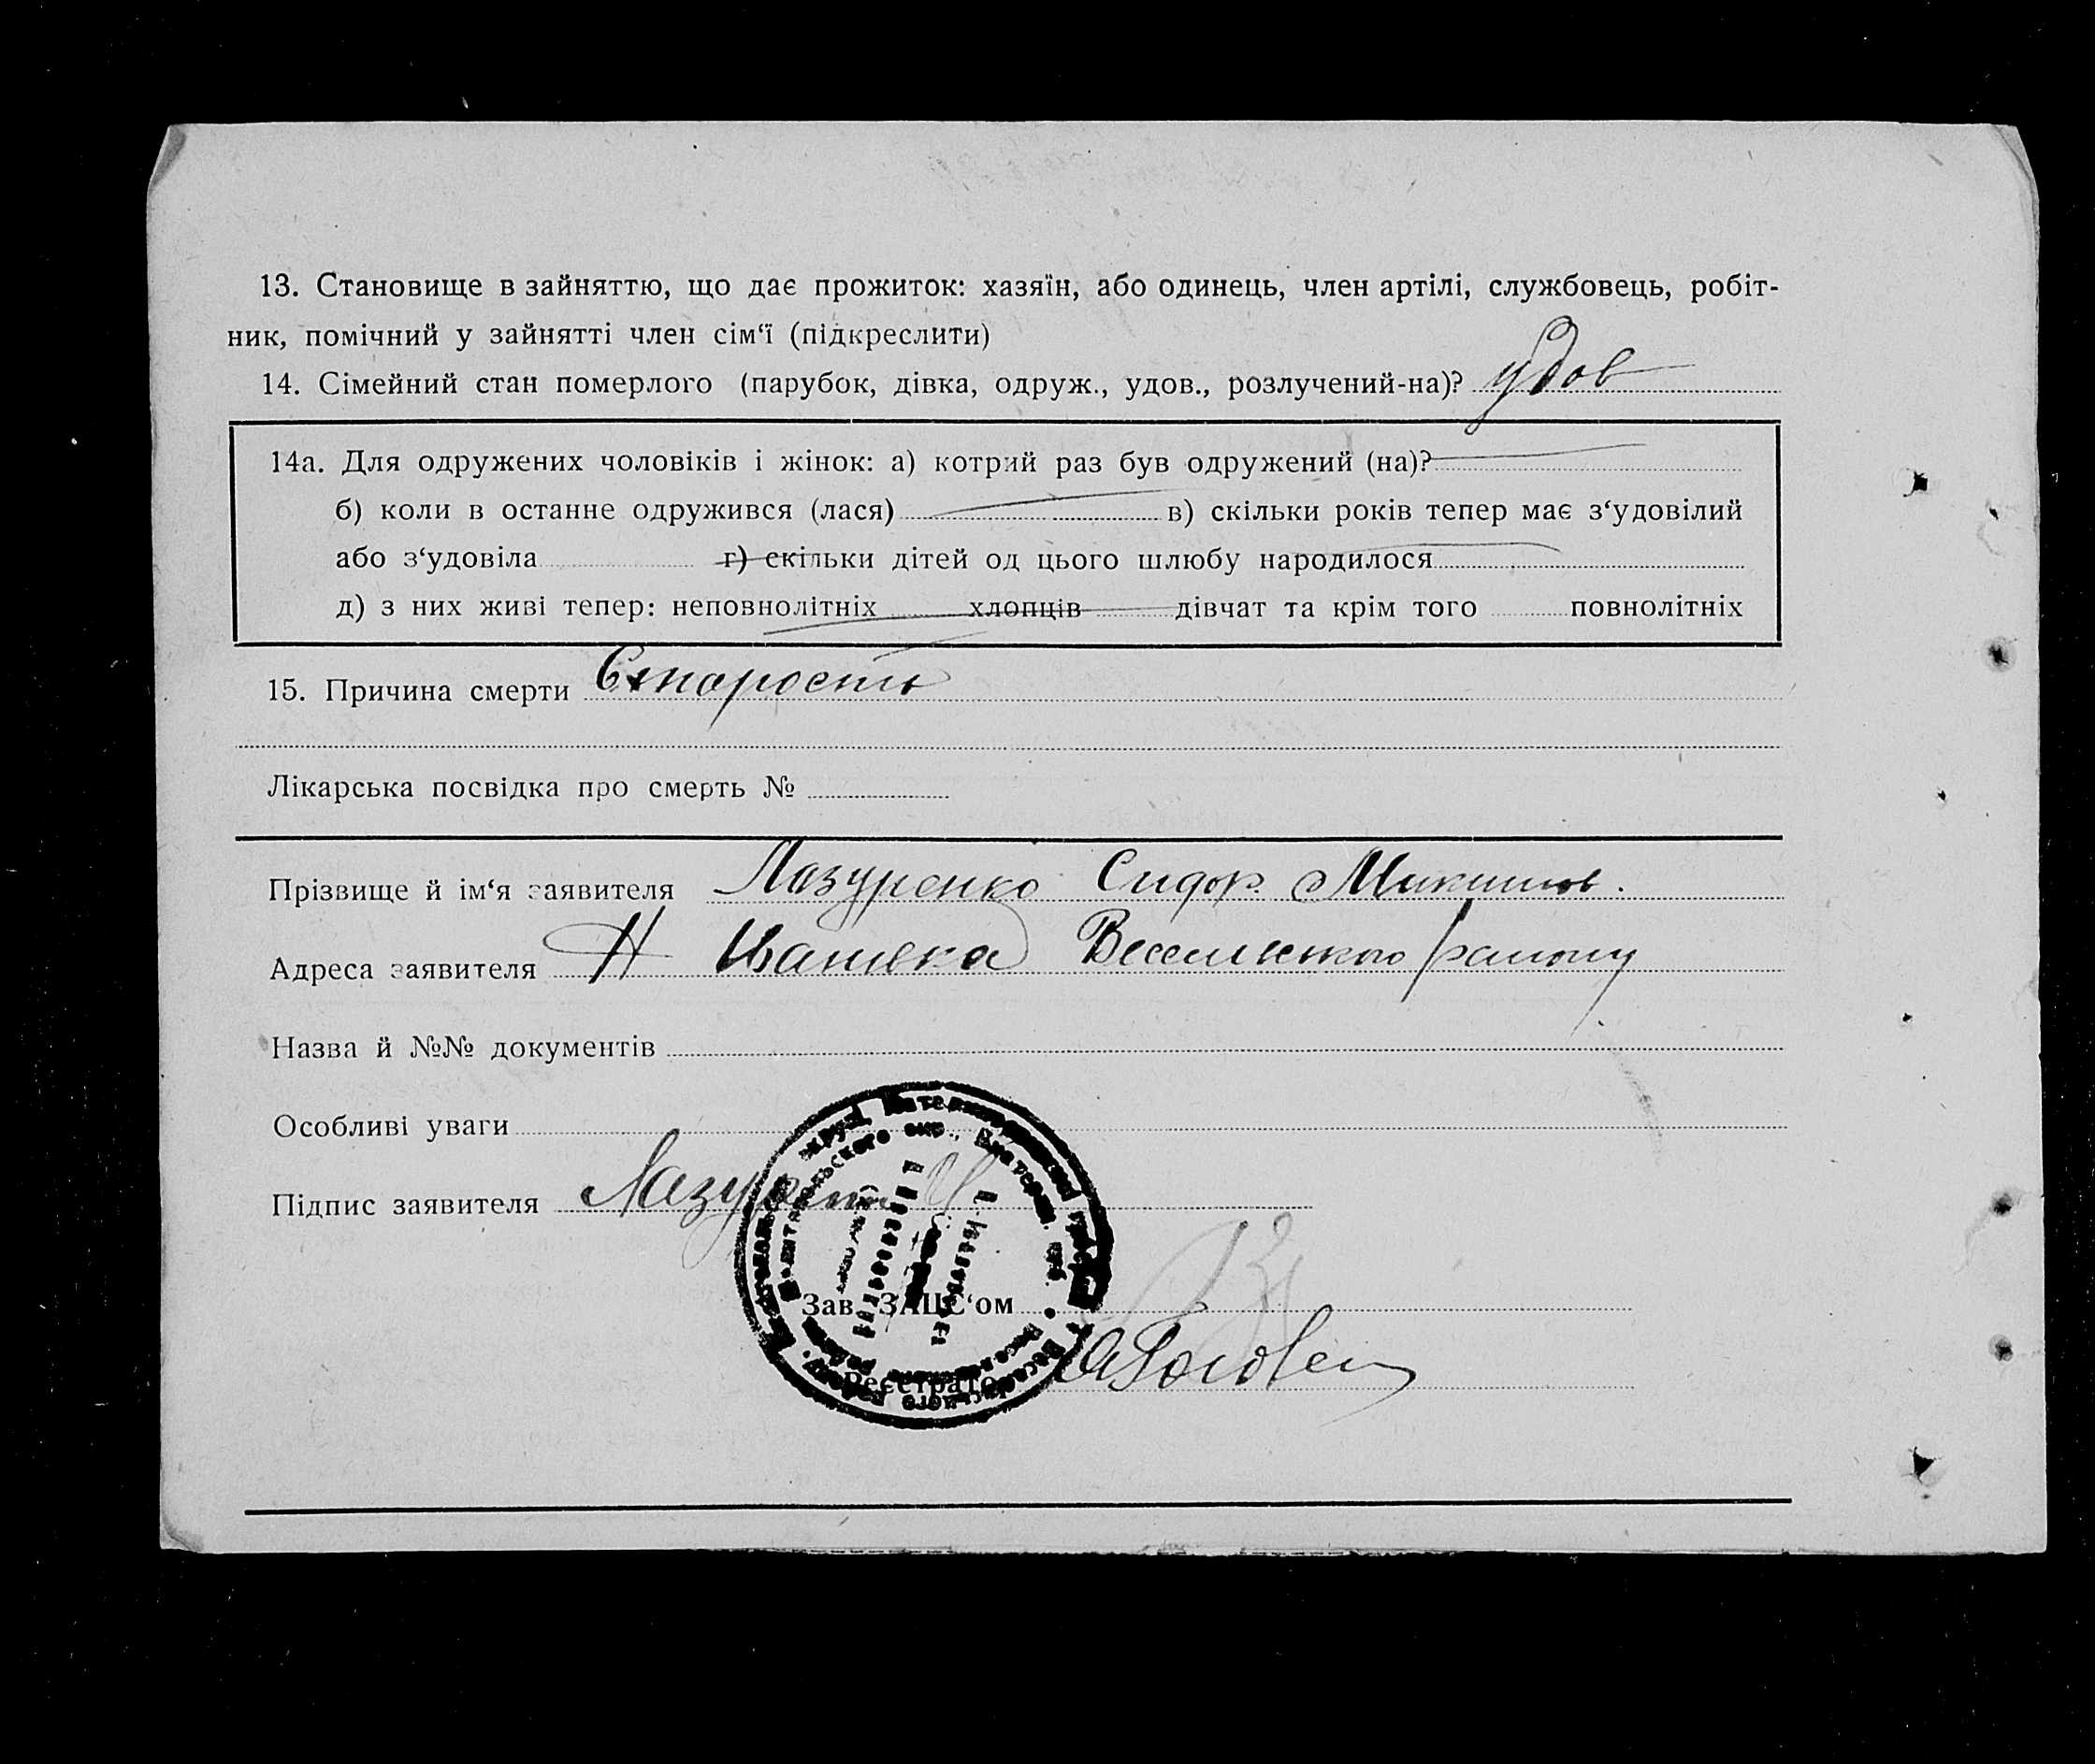 13. Становище в зайняттю, що дає прожиток: хазяїн, або одинець, член артілі, службовець, робіт-
ник, помічний у зайнятті член сім‘ї (підкреслити)
14. Сімейний стан померлого (парубок, дівка, одруж., удов., розлучений-на)? удов
14а. Для одружених чоловіків і жінок: а) котрий раз був одружений (на)?
б) коли в останне одружився (лася) в) скільки років тепер має з‘удовілий
або з‘удовіла г) скільки дітей од цього шлюбу народилося
д) з них живі тепер: неповнолітніх хлопців дівчат та крім того повнолітніх
15. Причина смерти Старость
Лікарська посвідка про смерть №
Прізвище й ім‘я заявителя Лазуренко Сидор
Адреса заявителя Н району
Назва й №№ документів
Особливі уваги
Підпис заявителя
Зав. ЗАЦС‘ом
Реєстратор